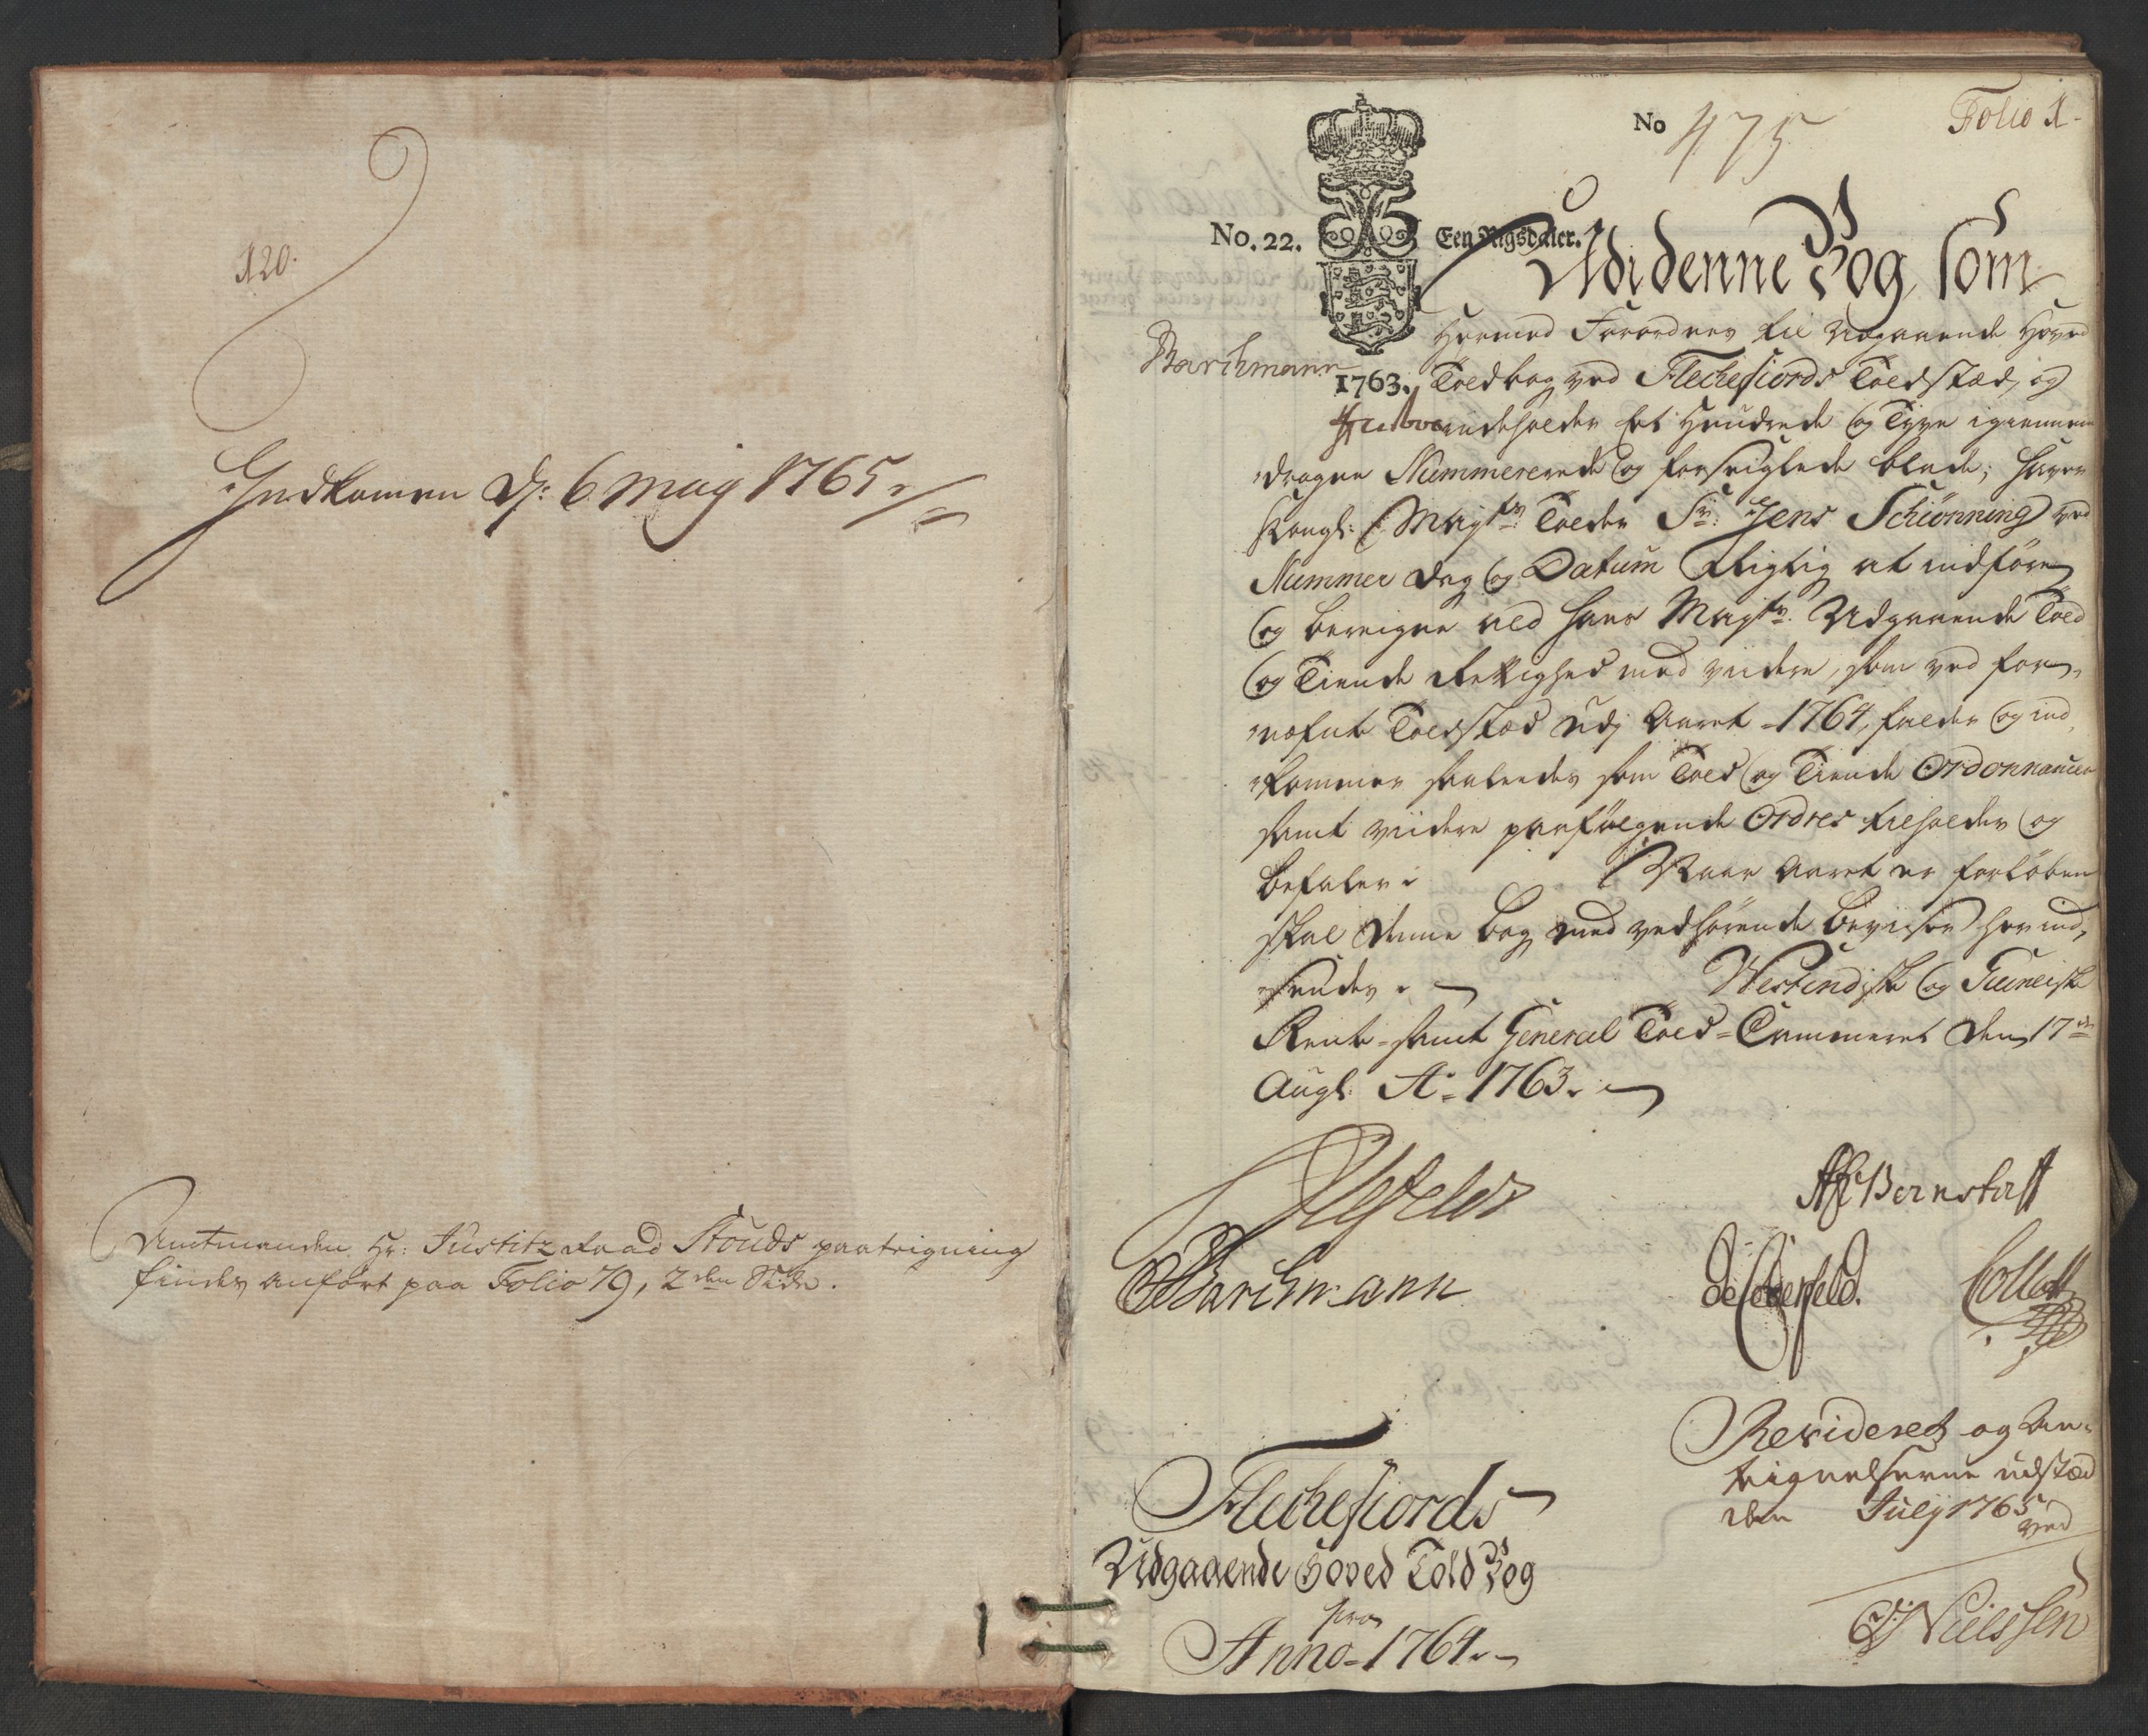 120.
Indkommen D: 6 May 1765.
Amtmanden Hr: Justitz Raad Stouds paategning
findes anført paa Folio 79, 2den Side.
No 475
Folio 1.
No. 22.
Een Rigsdaler.
1763.
Udi denne Bog, som
Hermed Forordnes til Udgaaende Hoved
Toldbog ved Flechefiords Toldsted, og
indeholder Et Hundrede og Tyve igiennem
dragne Nummererede og forseiglede blade; haver
Kongl: Mayts Tolder Sr: Jens Schiønning ved
Nummer Dag og Datum Rigtig at indføre
og beregne ald Hans Mayts Udgaaende Told
og Tiende Rettighed med viidere, som ved for-
nefnte Toldsted udj Aaret 1764, falder og ind-
kommer saaledes som Told og Tiende Ordonnancen
samt viidere paafølgende Ordres tilholder og
befaler.
Naar Aaret er forløben
skal denne bog med vedhørende beviser her ind-
sendes.
Westindiske og Guineiske
Rente- samt General Told-Cammeret den 17de
Augs: Ao 1763.
Barchmann
Bernstorff
Barchmann
Collett
Flechefiords
Udgaaende Hoved Told Bog
pro
Anno 1764.
Revideret og An-
tegnelserne udstæd
den July 1765
ved
Nielssen